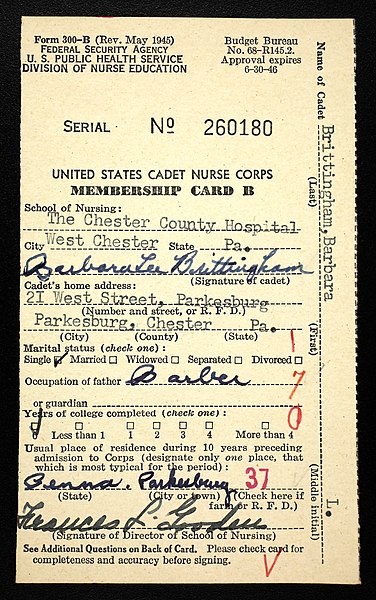 Form 300-B (Rev. May 1945)
FEDERAL SECURITY AGENCY
U. S. PUBLIC HEALTH SERVICE
DIVISION OF NURSE EDUCATION
Budget Bureau
No. 68-R145.2.
Approval expires
6-30-46
SERIAL No 260180
UNITED STATES CADET NURSE CORPS
MEMBERSHIP CARD B
School of Nursing:
The Chester County Hospital
City West Chester State Pa.
Barbara Lee Brittingham
(Signature of cadet)
Cadet's home address:
21 West Street, Parkesburg
(Number and street, or R. F. D.)
Parkesburg, Chester Pa.
(City) (County) (State)
Marital status (check one):
Single Married Widowed Separated Divorced
Occupation of father Barber
or guardian
Years of college completed (check one):
0 Less than 1 1 2 3 4 More than 4
Usual place of residence during 10 years preceding
admission to Corps (designate only one place, that
which is most typical for the period):
Penna. Parkesburg
(State) (City or town) (Check here if
farm or R. F. D.)
37
1
7
0
Frances L.
(Signature of Director of School of Nursing)
See Additional Questions on Back of Card. Please check card for
completeness and accuracy before signing.
Name of Cadet Brittingham, Barbara L.
(Last) (First) (Middle initial)